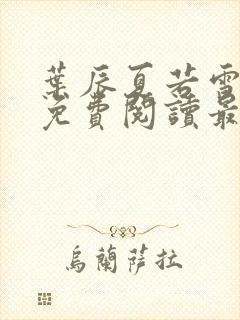 葉辰夏若雪
免費閱讀最
烏蘭薩拉